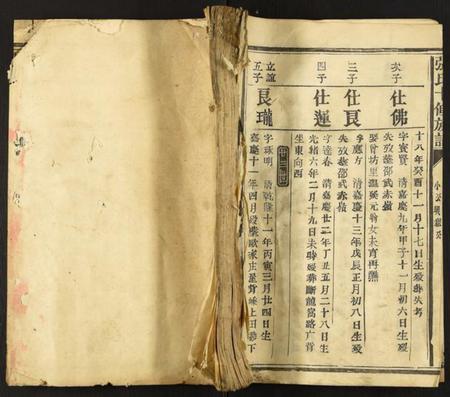 張氏十修族譜
十八年癸酉十一月十七日生歿葬失考
次子
仕佛
字寶賢 清嘉慶九年甲子十一月初六日生歿
失攷葬邵武赤嶺
娶曾坊里溫吳元翁女未育再醮
三子
仕良
字處方 清嘉慶十三年戊辰正月初八日生歿
失攷葬邵武赤嶺
四子
仕蓮
字達春 清嘉慶廿二年丁丑五月二十八日生
光緒六年二月十九日未時歿葬斷龍窩路廣背
坐東向西
立誼
五子
良瓏
字琢明 清乾隆十一年丙寅三月廿四日生
嘉慶十一年四月歿葬歐家庄屋背崠上田塝下